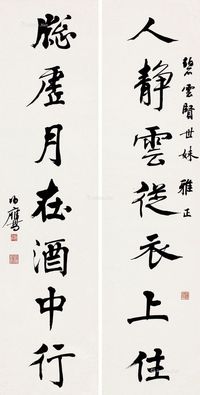 碧雲賢世妹 雅正
人靜雲從衣上住
凝虛月在酒中行